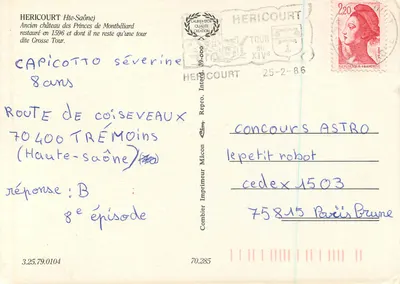 HERICOURT Hte-Saône)
Ancien château des Princes de Montbéliard
restauré en 1596 et dont il ne reste qu'une tour
dite Grosse Tour.
CAPICOTTO séverine
8 ans
ROUTE DE COISEVEAUX
70400 TRÉMOINS
(Haute-saône)
réponse : B
8e épisode
3.25.79.0104
70.285
Combier Imprimeur Mâcon
Repro. Inter.
HERICOURT
TOUR
DU
XIVe
HERICOURT 25-2-86
2,20
CONCOURS ASTRO
le petit robot
cedex 1503
75815 Paris Brune